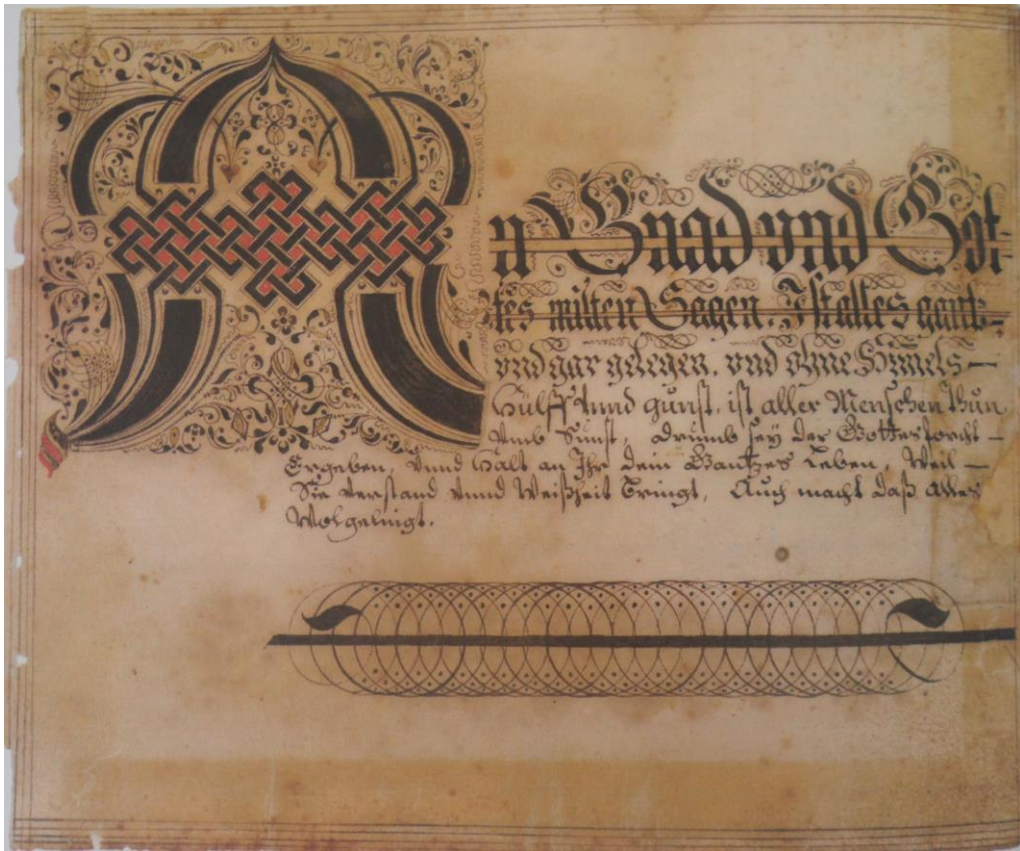 An Gnad vnd Got-
tes milten Sägen, Ist alles gantz
vnd gar gelegen, vnd ohne Himels
Hülff vnnd gunst, ist aller Menschen thun
Vmb Sunst, drumb sey der Gottesforcht
Ergeben, vnnd Halt an Ihr dein Gantzes Leben, Weil
Sie verstand vnnd Weißheit bringt, Auch macht daß alles
Wolgelingt.